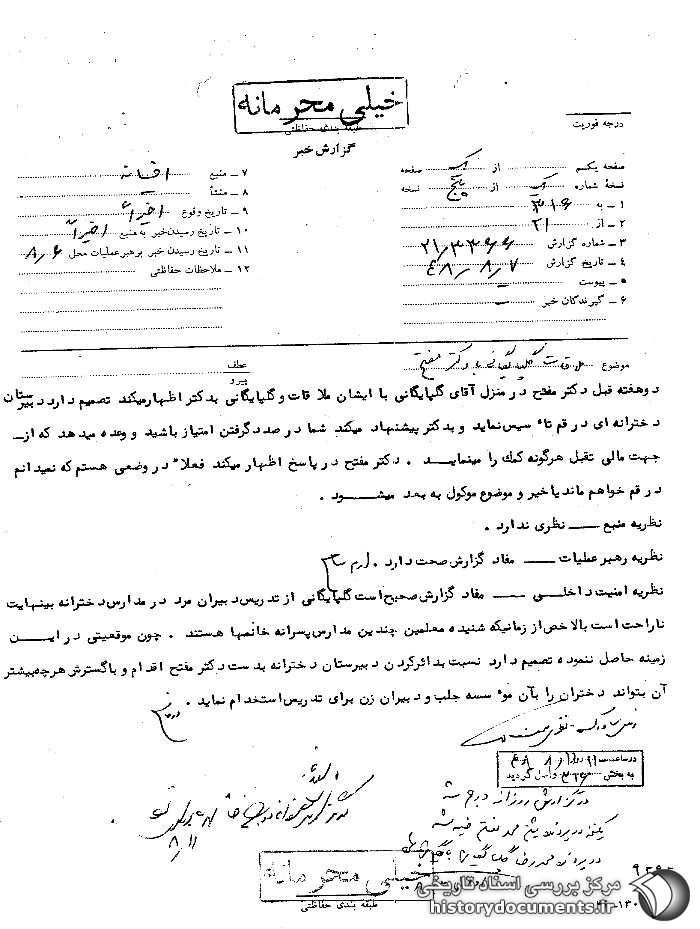 خیلی محرمانه
طبقه بندی حفاظتی
گزارش خبر
درجه فوریت
صفحه یکم از یک صفحه
نسخهٔ شماره یک از پنج نسخه
۱ ــ به ۳۱۶
۲ ــ از ۲۱
۳ ــ شماره گزارش ۲۱٫۳۴۶۶
۴ ــ تاریخ گزارش ۴۸٫۸٫۷
۵ ــ پیوست
۶ ــ گیرندگان خبر
۷ ــ منبع افسانه
۸ ــ منشأ
۹ ــ تاریخ وقوع اخیراً
۱۰ ــ تاریخ رسیدن خبر به منبع اخیراً
۱۱ ــ تاریخ رسیدن خبر برهبر عملیات محل ۸٫۶
۱۲ ــ ملاحظات حفاظتی
موضوع ملاقات گلپایگانی با دکتر مفتح
عطف
پیرو
دوهفته قبل دکتر مفتح در منزل آقای گلپایگانی با ایشان ملاقات وگلپایگانی بدکتر اظهارمیکند تصمیم دارد دبیرستان
دخترانه ای در قم تاء سیس نماید و بدکتر پیشنهاد میکند شما در صدد گرفتن امتیاز باشید و وعده میدهد که از ــ
جهت مالی تقبل هرگونه کمک را مینمایـــد . دکتر مفتح در پاسخ اظهار میکند فعلاً در وضعی هستم که نمیدانم
در قم خواهم ماند یا خیر و موضوع موکول به بعد میشـــود .
نظریه منبع ـــ نظری ندارد .
نظریه رهبر عملیات ـــ مفاد گزارش صحت دارد .
نظریه امنیت داخلـی ـــ مفاد گزارش صحیح است گلپایگانی از تدریس دبیران مرد در مدارس دخترانه بینهایت
ناراحت است بالاخص از زمانیکه شنیده معلمین چندین مدارس پسرانه خانمها هستند . چون موقعیتی در ایــن
زمینه حاصل ننموده تصمیم دارد نسبت بدائرکردن دبیرستان دخترانه بدست دکتر مفتح اقدام و باگسترش هرچه بیشتر
آن بتواند دختران را بآن موء سسه جلب و دبیران زن برای تدریس استخدام نماید .
در ساعت روز
به بخش ۳۱۶ واصل گردید
در گزارش روزانه درج شد
خیلی محرمانه
طبقه بندی حفاظتی
مرکز بررسی اسناد تاریخی
historydocuments.ir